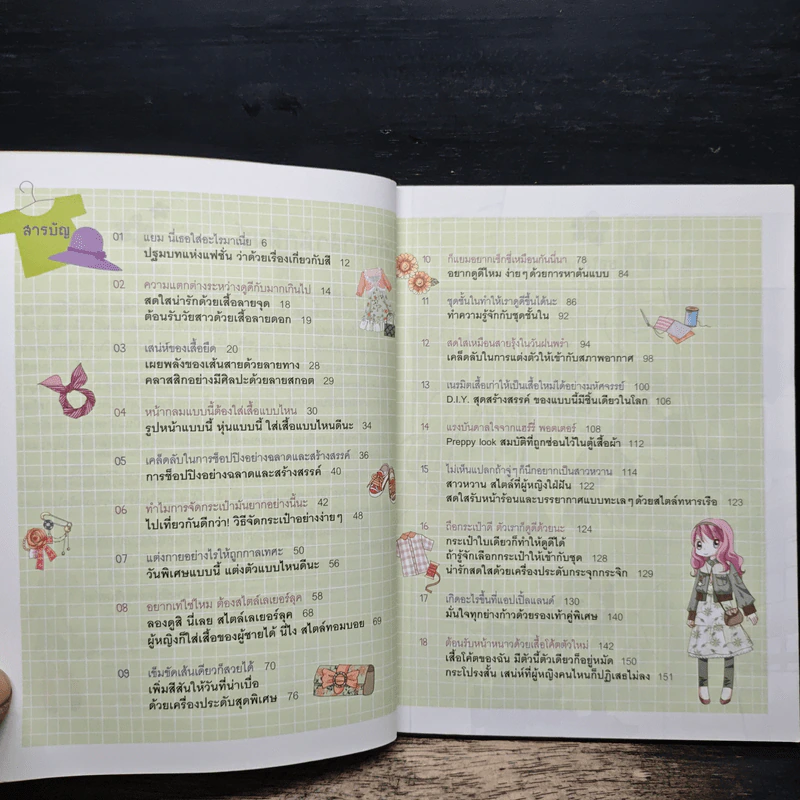 สารบัญ
01 แยม นี่เธอใส่อะไรมาเนี่ย 6
ปฐมบทแห่งแฟชั่น ว่าด้วยเรื่องเกี่ยวกับสี 12
02 ความแตกต่างระหว่างดูดีกับมากเกินไป 14
สดใสน่ารักด้วยเสื้อลายจุด 18
ต้อนรับวัยสาวด้วยเสื้อลายดอก 19
03 เสน่ห์ของเสื้อยืด 20
เผยพลังของเส้นสายด้วยลายทาง 28
คลาสสิกอย่างมีศิลปะด้วยลายสกอต 29
04 หน้ากลมแบบนี้ต้องใส่เสื้อแบบไหน 30
รูปหน้าแบบนี้ หุ่นแบบนี้ ใส่เสื้อแบบไหนดีนะ 34
05 เคล็ดลับในการช็อปปิงอย่างฉลาดและสร้างสรรค์ 36
การช็อปปิงอย่างฉลาดและสร้างสรรค์ 40
06 ทำไมการจัดกระเป๋ามันยากอย่างนี้นะ 42
ไปเที่ยวกันดีกว่า! วิธีจัดกระเป๋าอย่างง่ายๆ 48
07 แต่งกายอย่างไรให้ถูกกาลเทศะ 50
วันพิเศษแบบนี้ แต่งตัวแบบไหนดีนะ 56
08 อยากเท่ใช่ไหม ต้องสไตล์เลเยอร์ลุค 58
ลองดูสิ นี่เลย สไตล์เลเยอร์ลุค 68
ผู้หญิงก็ใส่เสื้อของผู้ชายได้ นี่ไง สไตล์ทอมบอย 69
09 เข็มขัดเส้นเดียวก็สวยได้ 70
เพิ่มสีสันให้วันที่น่าเบื่อ
ด้วยเครื่องประดับสุดพิเศษ 76
10 ก็แยมอยากเซ็กซี่เหมือนกันนี่นา 78
อยากดูดีไหม ง่ายๆ ด้วยการหาต้นแบบ 84
11 ชุดชั้นในทำให้เราดูดีขึ้นได้นะ 86
ทำความรู้จักกับชุดชั้นใน 92
12 สดใสเหมือนสายรุ้งในวันฝนพรำ 94
เคล็ดลับในการแต่งตัวให้เข้ากับสภาพอากาศ 98
13 เนรมิตเสื้อเก่าให้เป็นเสื้อใหม่ได้อย่างมหัศจรรย์ 100
D.I.Y. สุดสร้างสรรค์ ของแบบนี้มีชิ้นเดียวในโลก 106
14 แรงบันดาลใจจากแฮร์รี่ พอตเตอร์ 108
Preppy look สมบัติที่ถูกซ่อนไว้ในตู้เสื้อผ้า 112
15 ไม่เห็นแปลกถ้าจู่ๆ ก็นึกอยากเป็นสาวหวาน 114
สาวหวาน สไตล์ที่ผู้หญิงใฝ่ฝัน 122
สดใสรับหน้าร้อนและบรรยากาศแบบทะเลๆ ด้วยสไตล์ทหารเรือ 123
16 ถือกระเป๋าดี ตัวเราก็ดูดีด้วยนะ 124
กระเป๋าใบเดียวก็ทำให้ดูดีได้
ถ้ารู้จักเลือกกระเป๋าให้เข้ากับชุด 128
น่ารักสดใสด้วยเครื่องประดับกระจุกกระจิก 129
17 เกิดอะไรขึ้นที่แอปเปิ้ลแลนด์ 130
มั่นใจทุกย่างก้าวด้วยรองเท้าคู่พิเศษ 140
18 ต้อนรับหน้าหนาวด้วยเสื้อโค้ตตัวใหม่ 142
เสื้อโค้ตของฉัน มีตัวนี้ตัวเดียวก็อยู่หมัด 150
กระโปรงสั้น เสน่ห์ที่ผู้หญิงคนไหนก็ปฏิเสธไม่ลง 151